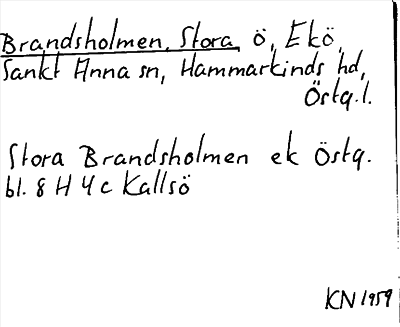 Brandsholmen, Stora, ö, Ekö,
Sankt Anna sn, Hammarkinds hd,
Östg.l.
Stora Brandsholmen ek Östg.
bl. 8 H 4 c Kallsö
KN 1959